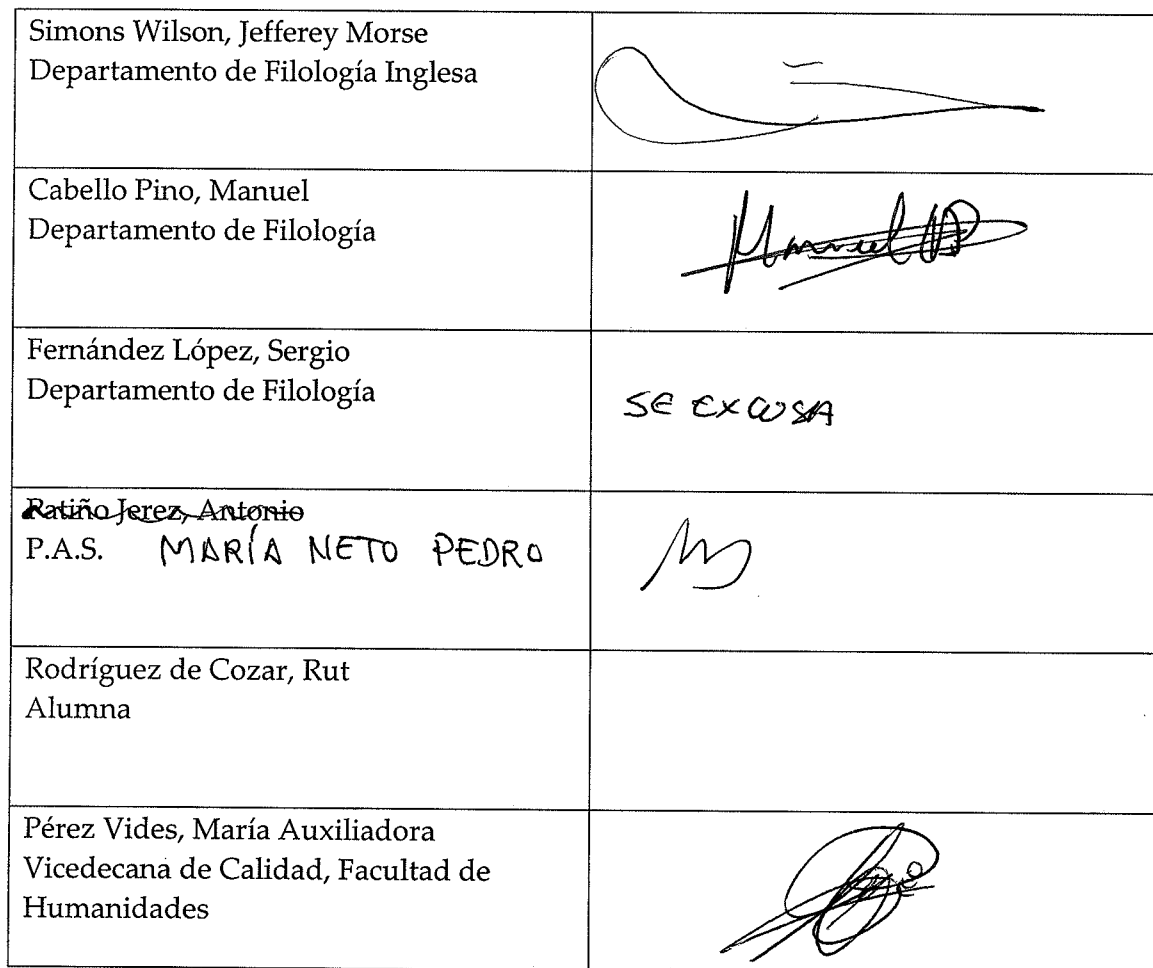 Simons Wilson, Jefferey Morse
Departamento de Filología Inglesa
Cabello Pino, Manuel
Departamento de Filología
Manuel
Fernández López, Sergio
Departamento de Filología
SE EXCUSA
Ratiño Jerez, Antonio
P.A.S. MARÍA NETO PEDRO
Rodríguez de Cozar, Rut
Alumna
Pérez Vides, María Auxiliadora
Vicedecana de Calidad, Facultad de
Humanidades